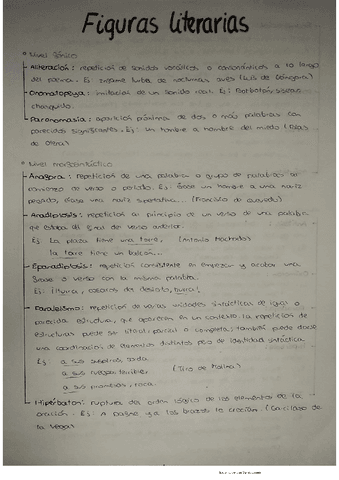 Figuras literarias
* Nivel fónico
- Aliteración: repetición de sonidos vocálicos o consonánticos a lo largo
del poema. Ej: infame turba de nocturnas aves (Luis de Góngora)
- Onomatopeya: imitación de un sonido real. Ej: Borbotón, siseo,
chasquido.
- Paronomasia: aparición próxima de dos o más palabras con
parecidos significantes. Ej: Un hombre a hombros del miedo (Blas
de Otero)
* Nivel morfosintáctico
- Anáfora: repetición de una palabra o grupo de palabras al
comienzo de verso o período. Ej: Érase un hombre a una nariz
pegado, érase una nariz superlativa... (Francisco de Quevedo)
- Anadiplosis: repetición al principio de un verso de una palabra
que estaba al final del verso anterior.
Ej: La plaza tiene una torre, (Antonio Machado)
la torre tiene un balcón...
- Epanadiplosis: repetición consistente en empezar y acabar una
frase o verso con la misma palabra.
Ej:
- Paralelismo: repetición de varias unidades sintácticas de igual o
parecida estructura, que aparecen en un contexto. La repetición de
estructuras puede ser literal, parcial o completa; también puede darse
una coordinación de elementos distintos pero de identidad sintáctica.
Ej: a sus suspiros, sorda,
a sus ruegos, terrible, (Tirso de Molina)
a sus promesas, roca.
- Hipérbaton: ruptura del orden lógico de los elementos de la
oración. Ej: A Dafne ya los brazos le crecían. (Garcilaso de
la Vega)